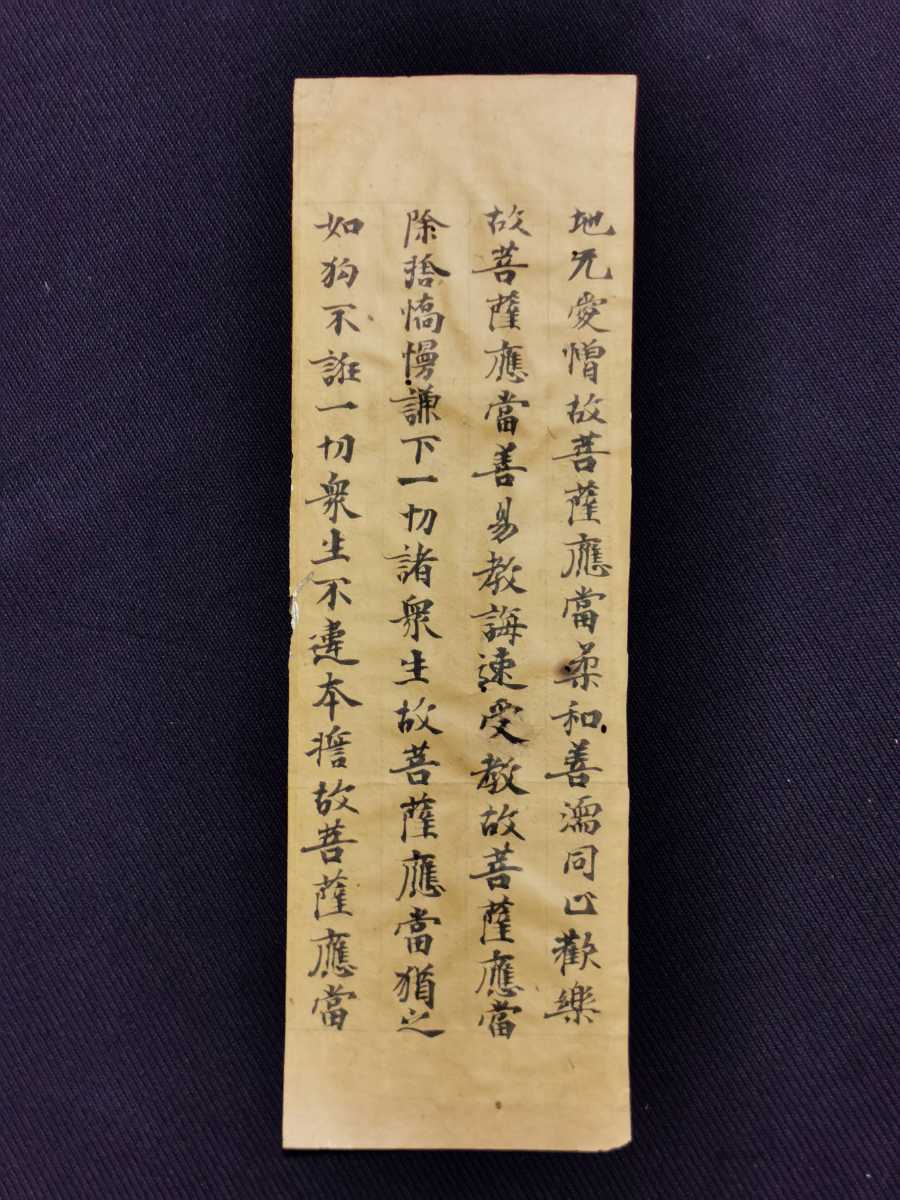 地无愛憎故菩薩應當柔和善濡同止歡樂
故菩薩應當善易教誨速受教故菩薩應當
除捨憍慢謙下一切諸衆生故菩薩應當猶之
如狗不誑一切衆生不違本誓故菩薩應當